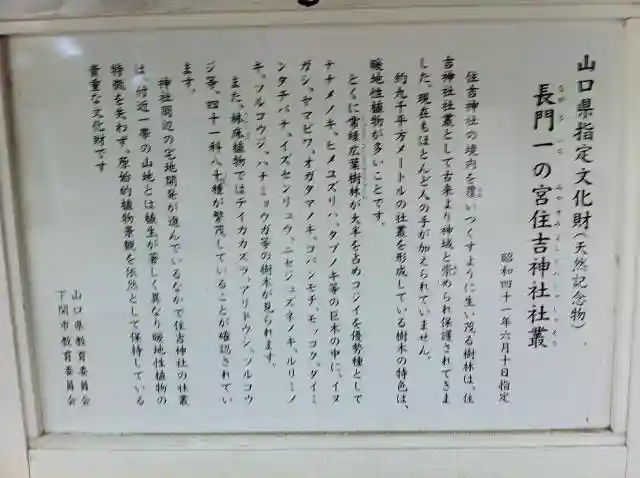 山口県指定文化財(天然記念物)
長門一の宮住吉神社社叢
昭和四十一年六月十日指定
住吉神社の境内を覆いつくすように生い茂る樹林は、住
吉神社社叢として古来より神域と崇められ保護されてきま
した。現在もほとんど人の手が加えられていません。
約九千平方メートルの社叢を形成している樹木の特色は、
暖地性植物が多いことです。
とくに常緑広葉樹林が大半を占めコジイを優勢種として
ナナメノキ、ヒメユズリハ、タブノキ等の巨木の中に、イヌ
ガシ、ヤマビワ、オガタマノキ、コバンモチ、モッコク、タイミ
ンタチバナ、イズセンリュウ、ニセジュズネノキ、ルリミノ
キ、ツルコウジ、ハナミョウガ等の樹木が見られます。
また、林床植物ではテイカカズラ、アリドウシ、ツルコウ
ジ等、四十一科八十種が繁茂していることが確認されてい
ます。
神社周辺の宅地開発が進んでいるなかで住吉神社の社叢
は、付近一帯の山地とは植生が著しく異なり暖地性植物の
特徴を失わず、原始的植物景観を依然として保持している
貴重な文化財です
山口県教育委員会
下関市教育委員会